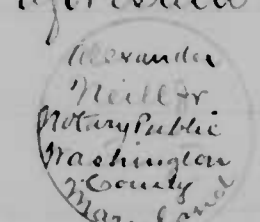 Alexander
Neill Jr
Notary Public
Washington
County
Maryland